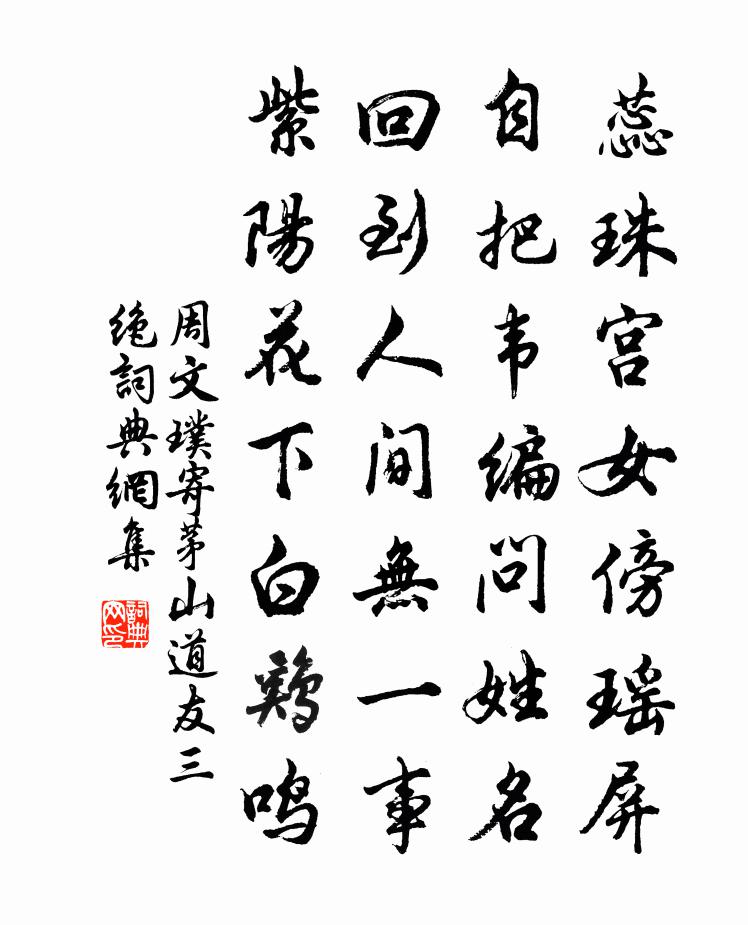 蕊珠宫女傍瑶屏
自把韦编问姓名
回到人间無一事
紫陽花下白鷄鸣
周文璞寄茅山道友三
绝詞典網集
詞典网印